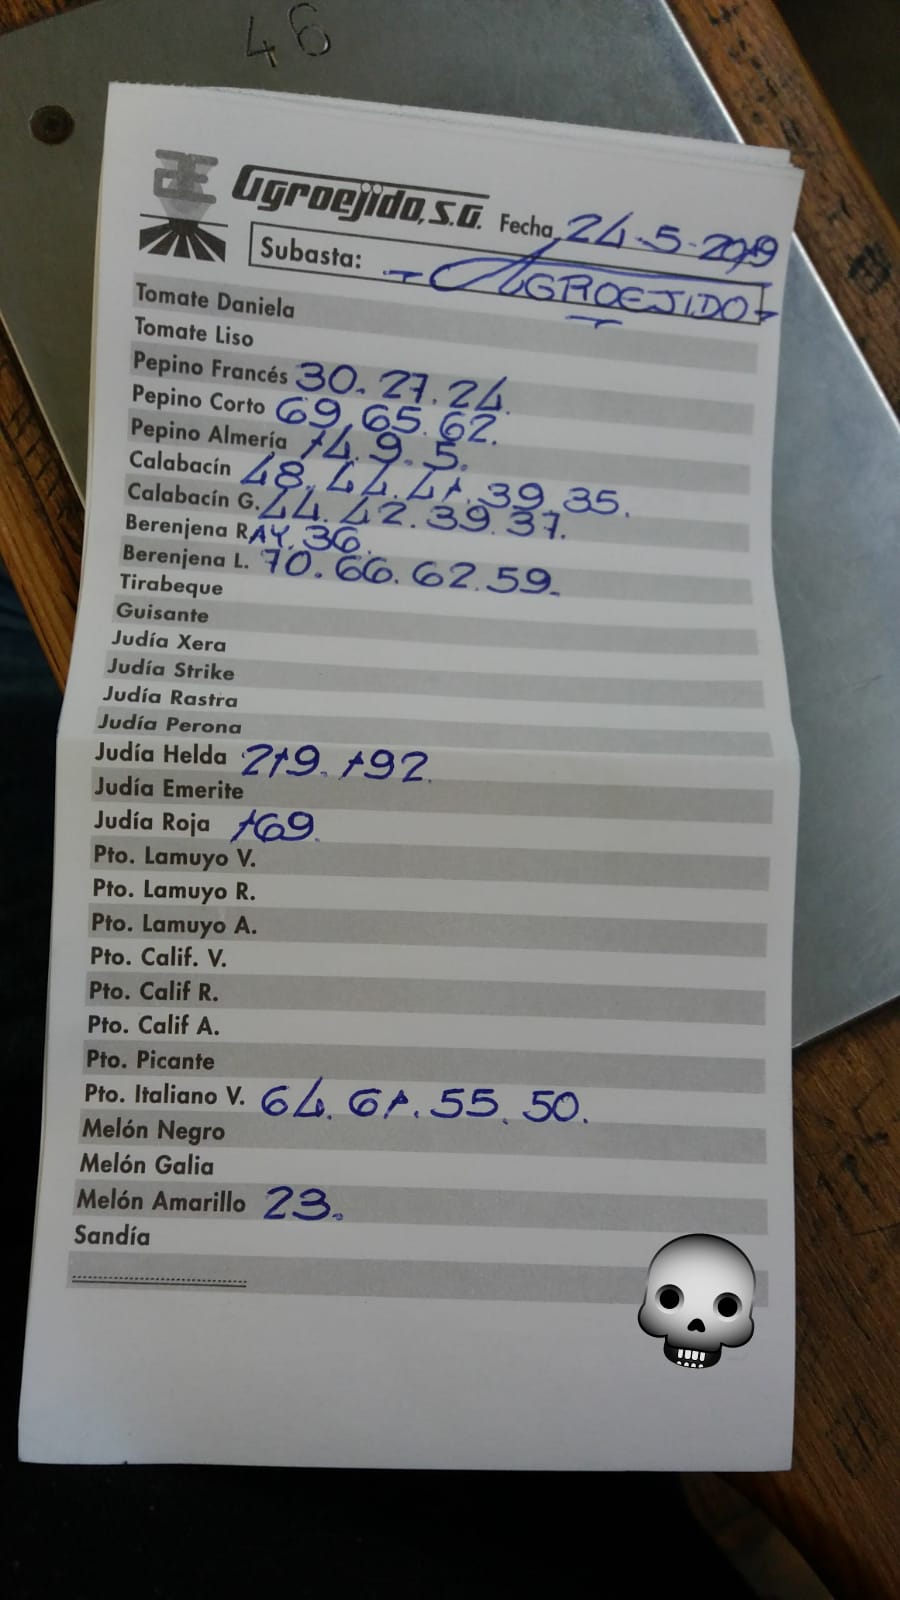 46
Agroejido, S.A. Fecha 24-5-2019
Subasta: - AGROEJIDO -
Tomate Daniela
Tomate Liso
Pepino Francés 30. 27. 24.
Pepino Corto 69. 65. 62.
Pepino Almería 14. 9. 5.
Calabacín 48. 44. 41. 39. 35.
Calabacín G. 44. 42. 39. 37.
Berenjena RAY. 36.
Berenjena L. 70. 66. 62. 59.
Tirabeque
Guisante
Judía Xera
Judía Strike
Judía Rastra
Judía Perona
Judía Helda 219. 192.
Judía Emerite
Judía Roja 169.
Pto. Lamuyo V.
Pto. Lamuyo R.
Pto. Lamuyo A.
Pto. Calif. V.
Pto. Calif R.
Pto. Calif A.
Pto. Picante
Pto. Italiano V. 64. 61. 55. 50.
Melón Negro
Melón Galia
Melón Amarillo 23.
Sandía